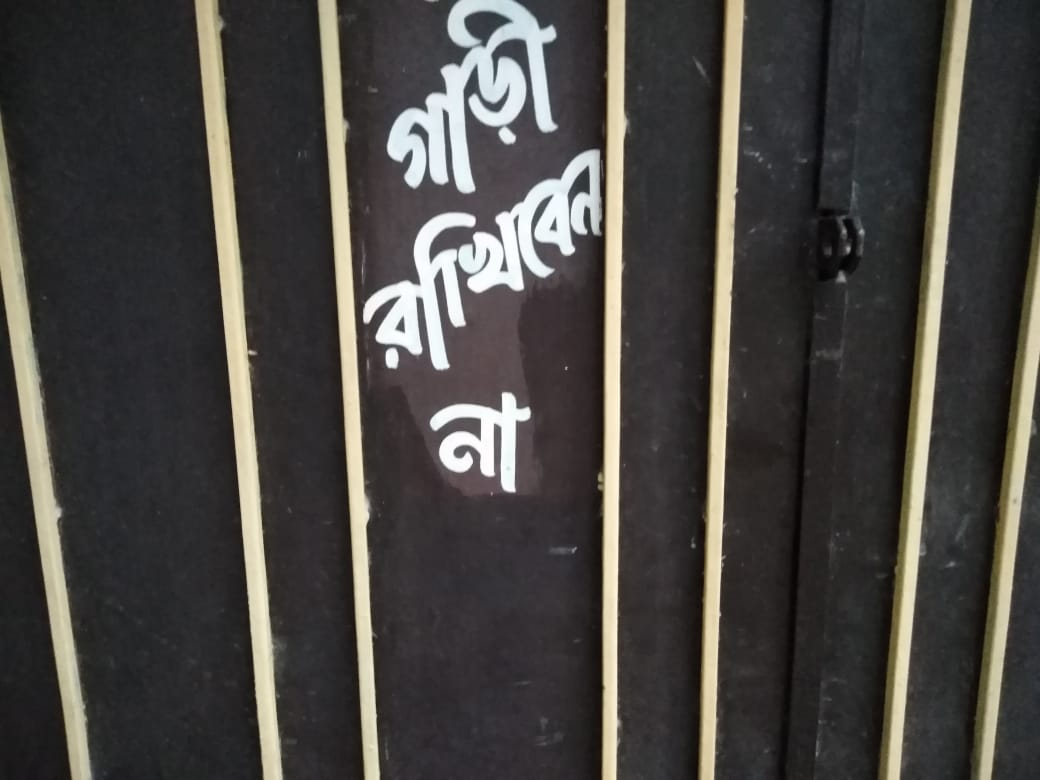 গাড়ী
রাখিবেন
না